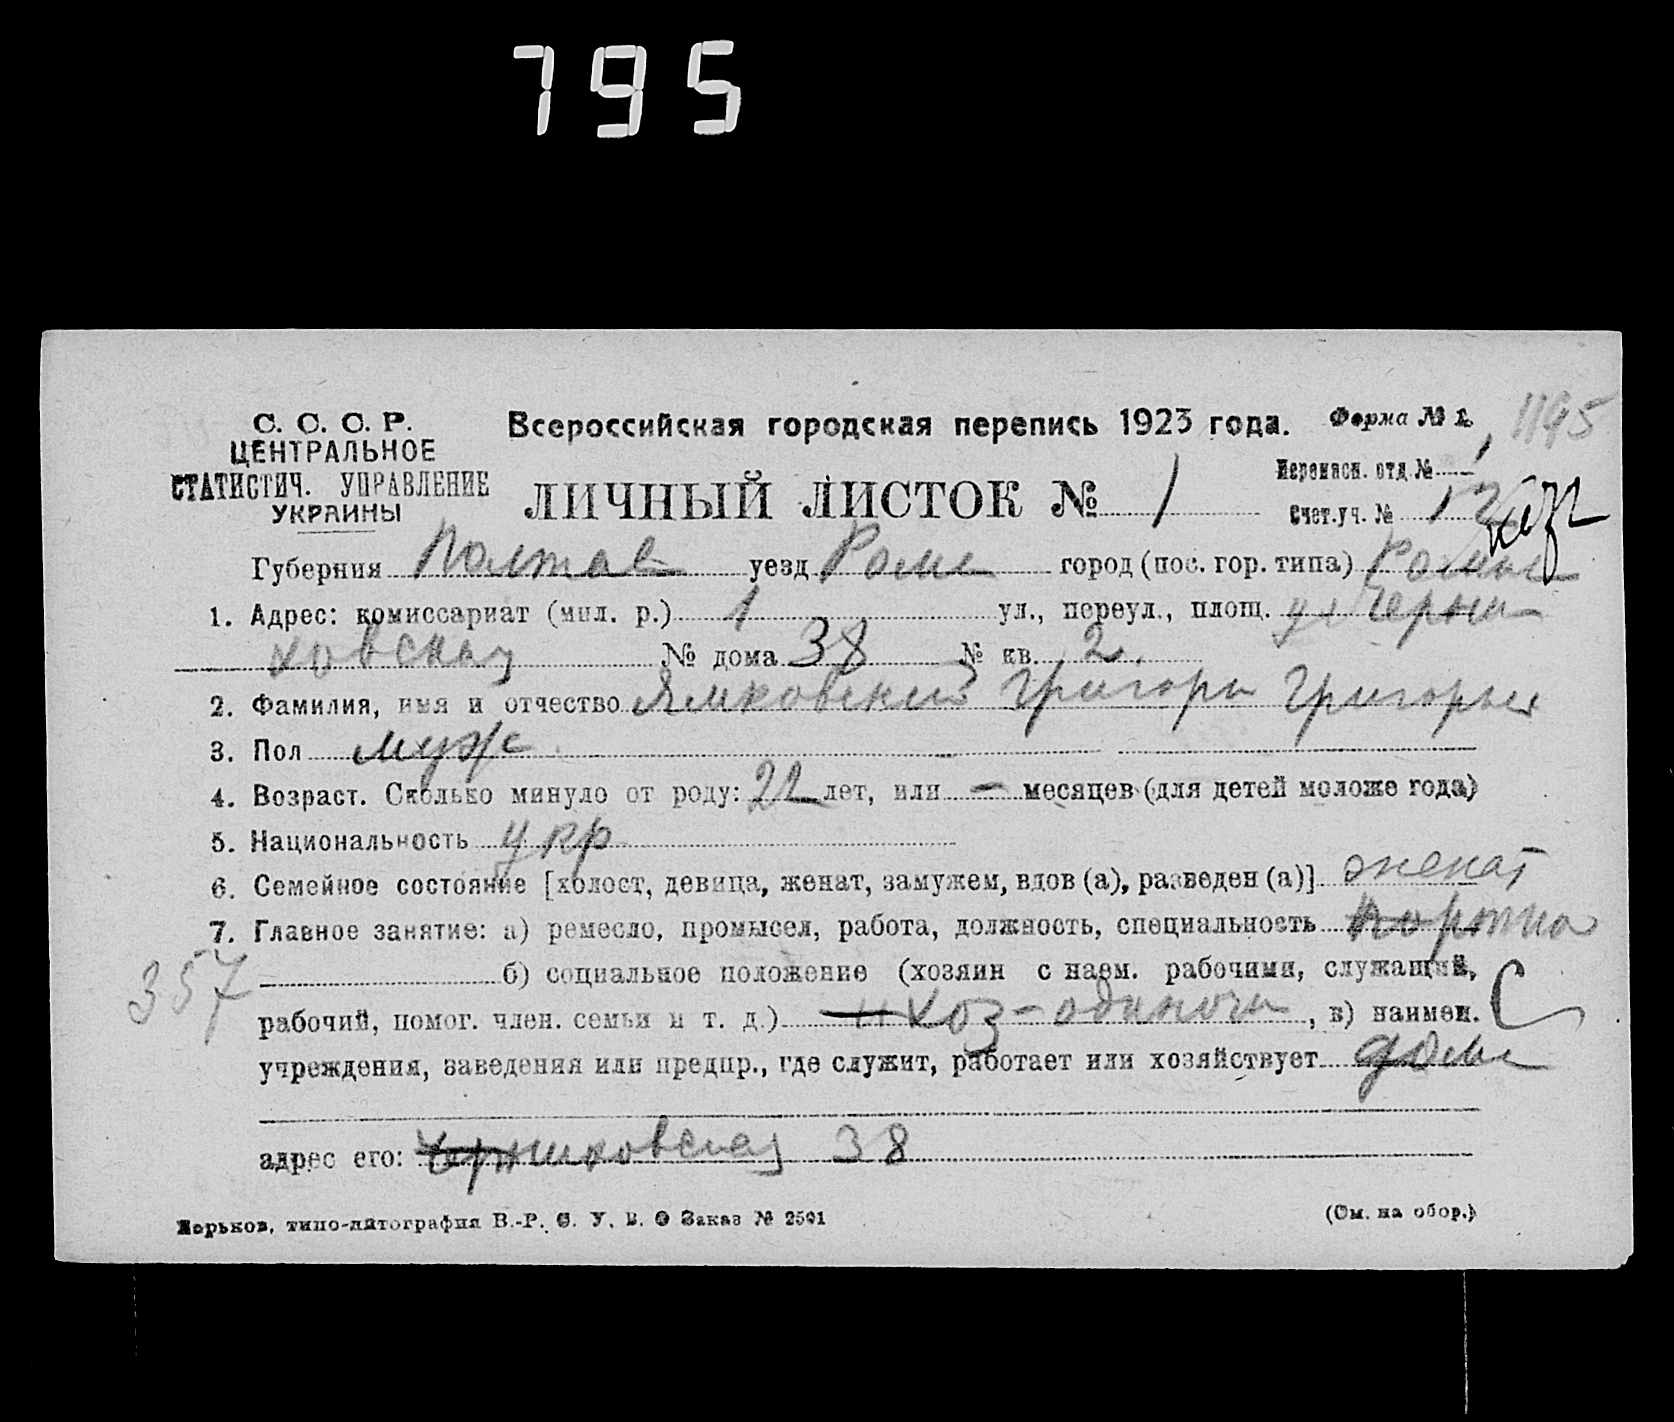 795
С. С. С. Р.
ЦЕНТРАЛЬНОЕ
СТАТИСТИЧ. УПРАВЛЕНИЕ
УКРАИНЫ
Всероссийская городская перепись 1923 года.
Форма № 1. 1195
ЛИЧНЫЙ ЛИСТОК № 1
Переписн. отд. № 1
Счет. уч. № 12
Губерния Полтав уезд Ромен город (пос. гор. типа) Ромны
1. Адрес: комиссариат (мил. р.) 1 ул., переул., площ. ул Черни
ховская № дома 38 № кв. 2.
2. Фамилия, имя и отчество Ямковский Григори Григорьев
3. Пол муж
4. Возраст. Сколько минуло от роду: 22 лет, или – месяцев (для детей моложе года)
5. Национальность укр
6. Семейное состояние [холост, девица, женат, замужем, вдов (а), разведен (а)] женат
7. Главное занятие: а) ремесло, промысел, работа, должность, специальность портно
357 б) социальное положение (хозяин с наем. рабочими, служащий,
рабочий, помог. член. семьи и т. д.) хоз-одиночн, в) наимен. С
учреждения, заведения или предпр., где служит, работает или хозяйствует доме
адрес его: Черниховская 38
Харьков, типо-литография В.-Р. С. У. В. Заказ № 2501
(См. на обор.)